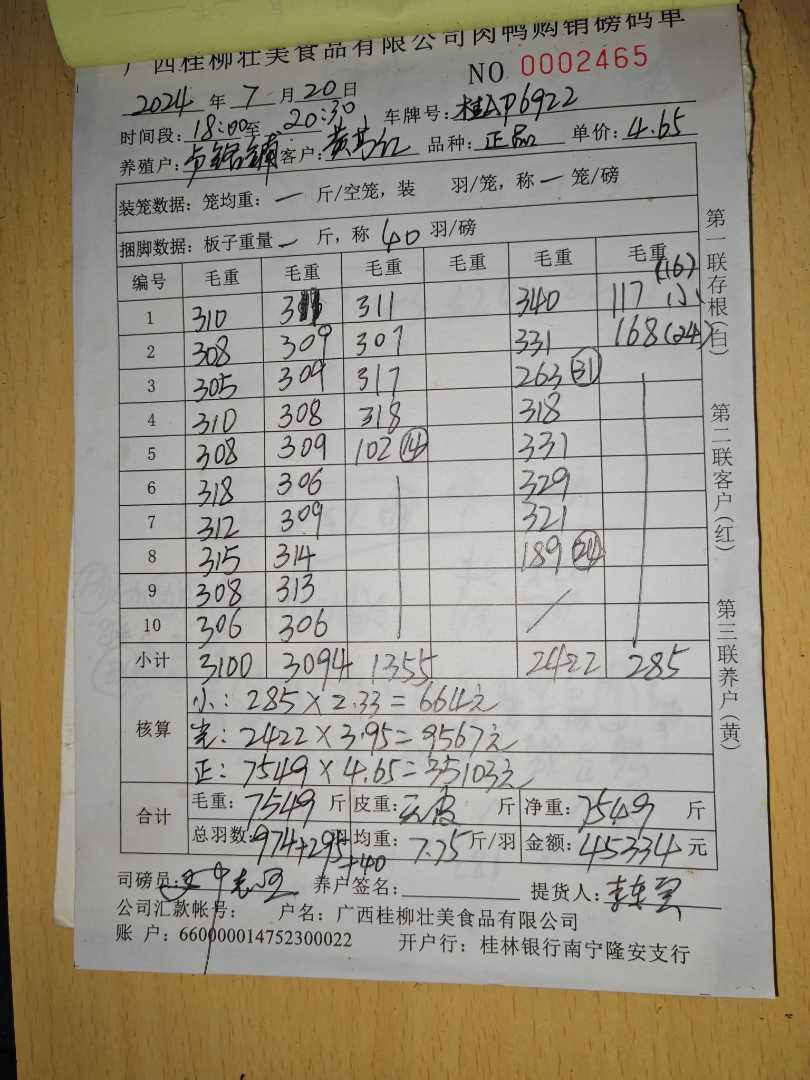 广西桂柳壮美食品有限公司肉鸭购销磅码单
NO 0002465
2024 年 7 月 20 日
时间段: 18:00 至 20:30 车牌号: 桂AP6922
养殖户: 客户: 黄 品种: 正品 单价: 4.65
装笼数据: 笼均重: 一 斤/空笼, 装 羽/笼, 称 一 笼/磅
捆脚数据: 板子重量 一 斤, 称 40 羽/磅
编号 毛重 毛重 毛重 毛重 毛重 毛重
(16)
1 310 311 340 117 小
2 308 309 307 331 168 (24)
3 305 309 317 263 (31)
4 310 308 318 318
5 308 309 102 (14) 331
6 318 306 329
7 312 309 321
8 315 314 189 (24)
9 308 313
10 306 306
小计 3100 3094 1355 2422 285
核算
小: 285 × 2.33 = 664元
: 2422 × 3.95 = 9567元
正: 7549 × 4.65 = 35103元
合计
毛重: 7549 斤 皮重: 斤 净重: 7549 斤
总羽数: 974+295 羽 均重: 7.75 斤/羽 金额: 45334 元
+40
司磅员: 养户签名: 提货人: 李
公司汇款帐号: 户名: 广西桂柳壮美食品有限公司
账 户: 660000014752300022 开户行: 桂林银行南宁隆安支行
第一联存根(白)
第二联客户(红)
第三联养户(黄)